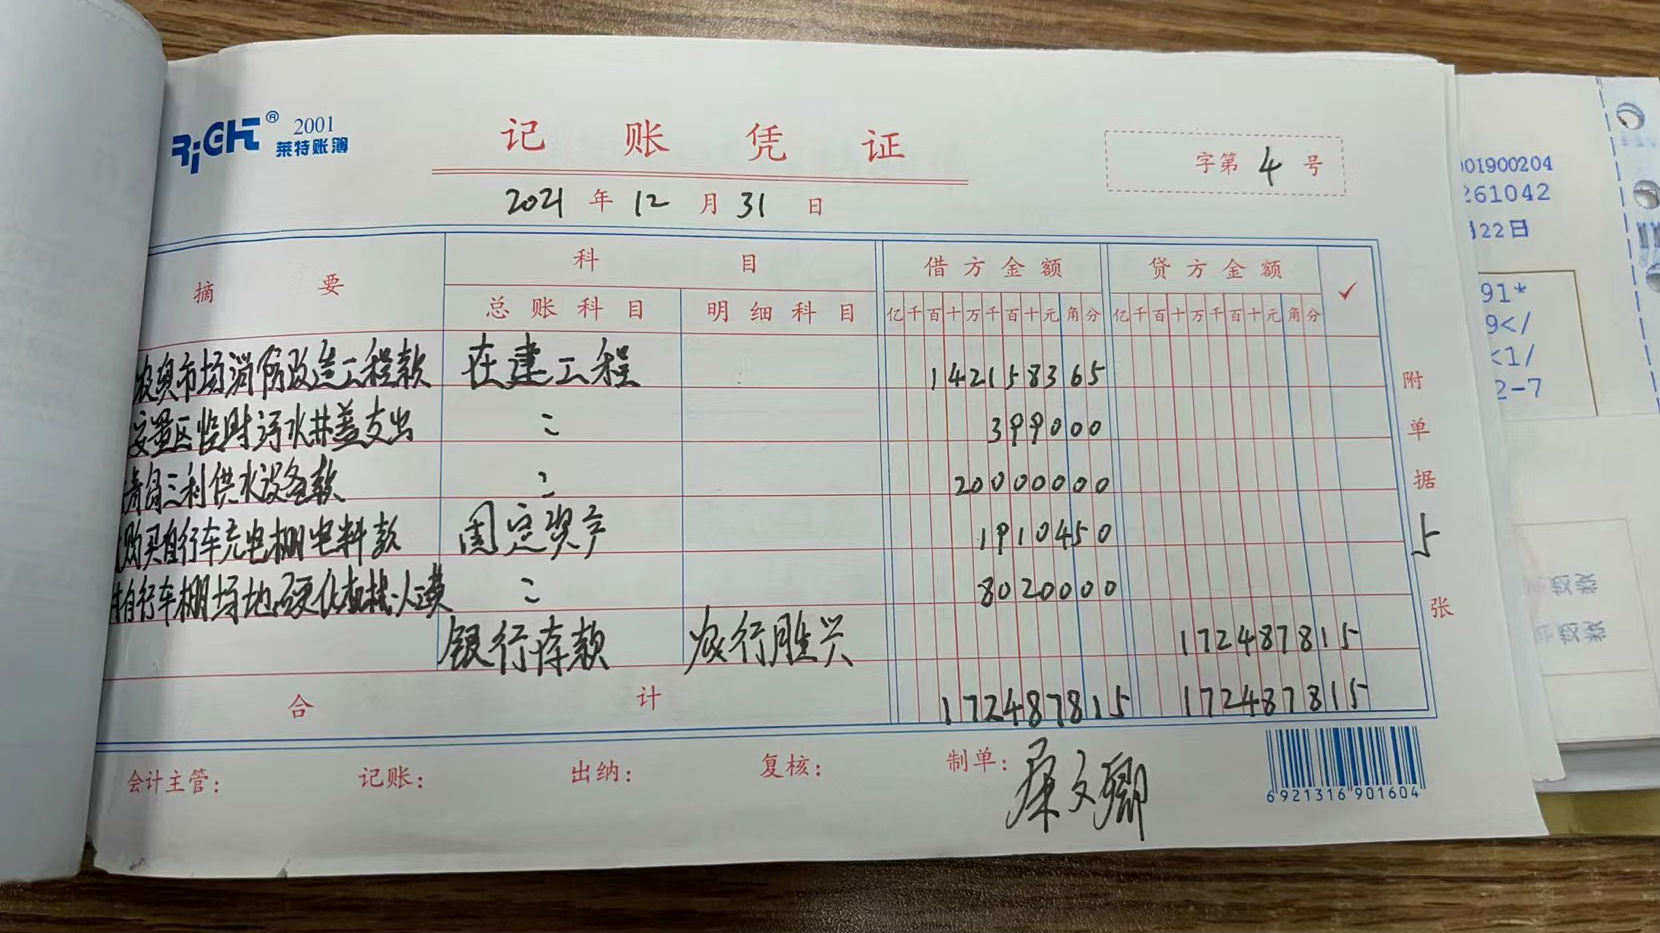 RiGHT® 2001
莱特账簿
记账凭证
字第 4 号
2021 年 12 月 31 日
摘要 科目 借方金额 贷方金额 ✓
总账科目 明细科目 亿千百十万千百十元角分 亿千百十万千百十元角分
市场消防改造工程款 在建工程 142158365
安置区临时污水井盖支出 〃 399000
青岛三利供水设备款 〃 20000000
购买自行车充电棚电料款 固定资产 1910450
自行车棚场地硬化 〃 8020000
银行存款 农行胜兴 172487815
合计 172487815 172487815
附单据 5 张
会计主管： 记账： 出纳： 复核： 制单：
6921316901604
01900204
261042
22日
91*
9</
<1/
2-7